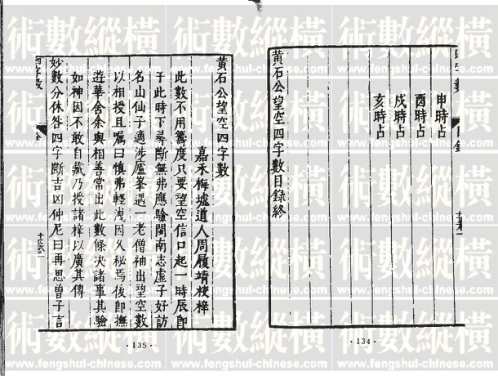 申時占
酉時占
戌時占
亥時占
黄石公望空四字數目錄終
· 134 ·
黄石公望空四字數
嘉禾梅墟道人周履靖校梓
此數不用籌度只要望空信口起一時辰即
于此時下尋斷無弗應驗閩南志虚子好訪
名山仙子適涉廬峯遇一老僧袖出望空數
以相授且囑曰慎弗輕洩因久秘焉後即撫
遊華舍余與相善常出此數條決諸事其驗
如神因不敢自蔵乃授諸梓以廣其傳
妙數分休咎四字斷吉凶仲尼曰再思曾子言
· 135 ·
術數縱橫
www.fengshui-chinese.com